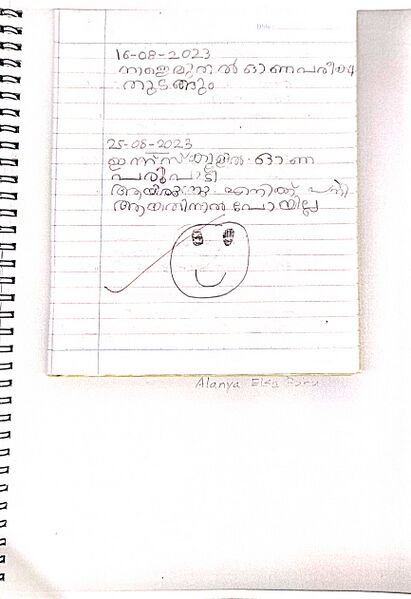 16-08-2023
നാളെമുതൽ ഓണപരീക്ഷ
തുടങ്ങും
25-08-2023
ഇന്ന് സ്കൂളിൽ ഓണ
പരിപാടി
ആയിരുന്നു എനിക്ക് പനി
ആയതിന്നൽ പോയില്ല
Alanya Elsa